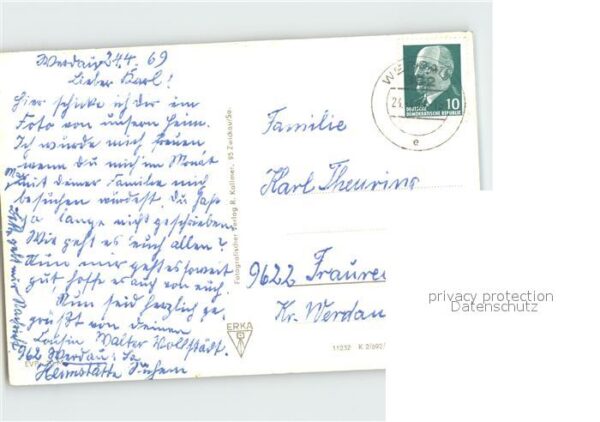 Werdau, 24.4.69
Lieber Karl!
Hier schicke ich dir ein
Foto von unsern Heim.
Ich würde mich freuen
wenn du mich im Monat
Mai mit deiner Familie mich
besuchen würdest. Du hast
ja lange nicht geschrieben
Wie geht es euch allen?
Nun mir geht es soweit
gut hoffe es auch von euch.
Nun seid herzlich ge-
grüßt von deinen
Cousin Walter Wollstädt.
962 Werdau/Sa
Heimstätte
Fotografischer Verlag R. Kallmer, 95 Zwickau/Sa.
ERKA
11232 K 2/69
DEUTSCHE
DEMOKRATISCHE REPUBLIK
10
e
Familie
Karl Theuring
9622 Fraure
Kr. Werdau
privacy protection
Datenschutz